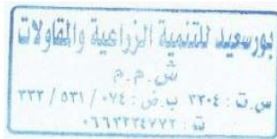 بورسعيد للتنمية الزراعية والمقاولات
ش . م . م
س . ت : ٣٣٠٤ ب . ض : ٠٧٤ / ٥٣١ / ٣٣٣
ت : ٠٦٦٣٣٣٤٧٧٢